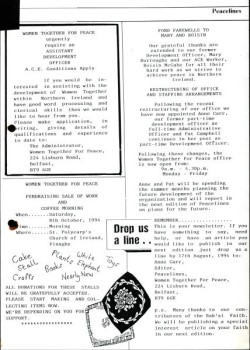 Peacelines
WOMEN TOGETHER FOR PEACE
urgently
require an
ASSISTANT
DEVELOPMENT
OFFICER
A.C.E. Conditions Apply
If you would be in-
terested in assisting with the
development of Women Together
within Northern Ireland and
have good word processing and
clerical skills then we would
like to hear from you.
Please make application, in
writing, giving details of
qualifications and experience
to date to:
The Administrator,
Women Together For Peace,
224 Lisburn Road,
Belfast,
BT9 6GE
WOMEN TOGETHER FOR PEACE
FUNDRAISING SALE OF WORK
AND
COFFEE MORNING
When.....Saturday,
8th October, 1994
Time.....Morning
Where....St. Polycarp's
Church of Ireland,
Finaghy
Cake
Stall
Crafts
Plants
Books
White
Elephant
Toys
Nearly New
ALL DONATIONS FOR THESE STALLS
WILL BE GRATEFULLY ACCEPTED.
PLEASE START MAKING AND COL-
LECTING ITEMS NOW.
WE'RE DEPENDING ON YOU FOR
SUPPORT!
FOND FAREWELLS TO
MARY AND ROISIN
Our grateful thanks are
extended to our former
Development Officer, Mary
Burroughs and our ACE Worker,
Roisin McCabe for all their
hard work as we strive to
achieve peace in Northern
Ireland.
RESTRUCTURING OF OFFICE
AND STAFFING ARRANGEMENT
Following the recent
restructuring of our office we
have now appointed Anne Carr,
our former part-time
development officer as
full-time Administrative
Officer and Pat Campbell
continues in her post as
part-time Development Officer.
Following these changes, the
Women Together For Peace office
is now open from:
9a.m. - 4.30p.m.
Monday - Friday
Anne and Pat will be spending
the summer months planning the
future development of the
organisation and will report in
the next edition of Peacelines
on plans for the future.
Drop us
a line..
REMEMBER
This is your newsletter. If you
have something to say, need
help, or have an article you
would like to publish in our
next edition just drop us a
line by 17th August, 1994 to:
Anne Carr,
Editor,
Peacelines,
Women Together For Peace,
224 Lisburn Road,
Belfast,
BT9 6GE
p.s. Many thanks to our con-
tributors of the Bahá'í Faith.
We will be publishing a special
interest article on your faith
in our next edition.